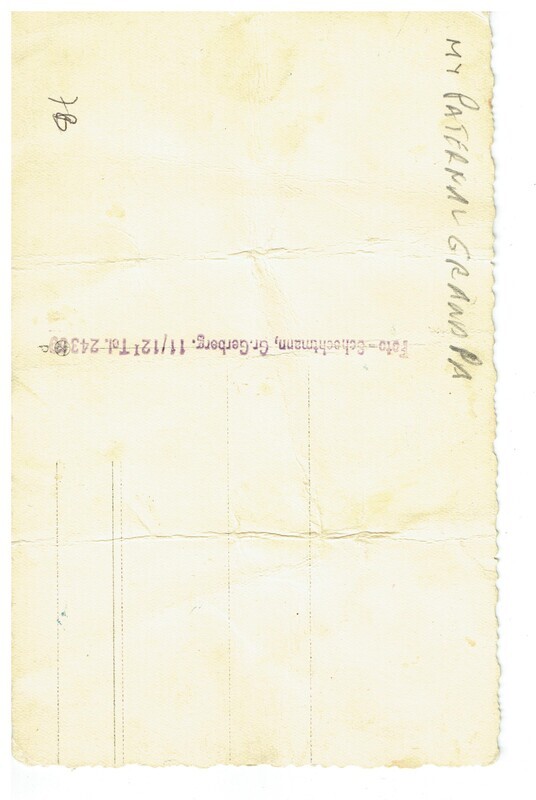 MY PATERNAL GRANDPA
Foto-Schechtmann, Gr.Gerberg. 11/12ᴵ Tel.